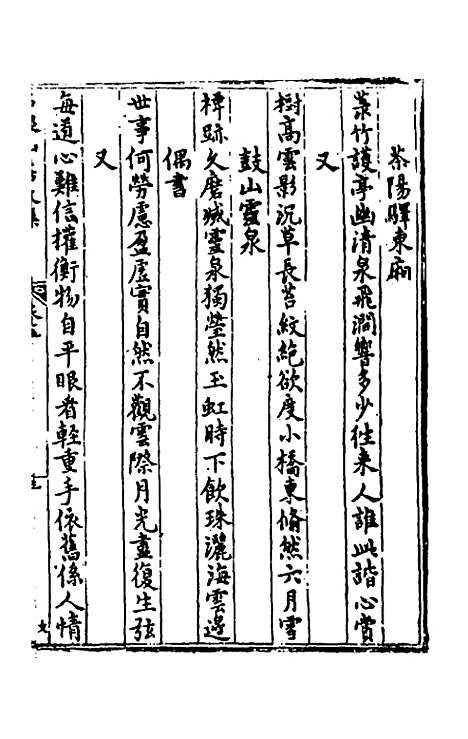 茶陽驛東廂
菉竹護亭幽清泉飛澗響多少往来人誰此諧心賞
又
樹高雲影沉草長苔紋絶欲度小橋東翛然六月雪
鼓山靈泉
禪跡久磨滅靈泉獨瑩然玉虹時下飲珠灑海雲邊
偶書
世事何勞慮盈虚實自然不觀雲際月光盡復生弦
又
每道心難信權衡物自平眼看輕重手依舊係人情